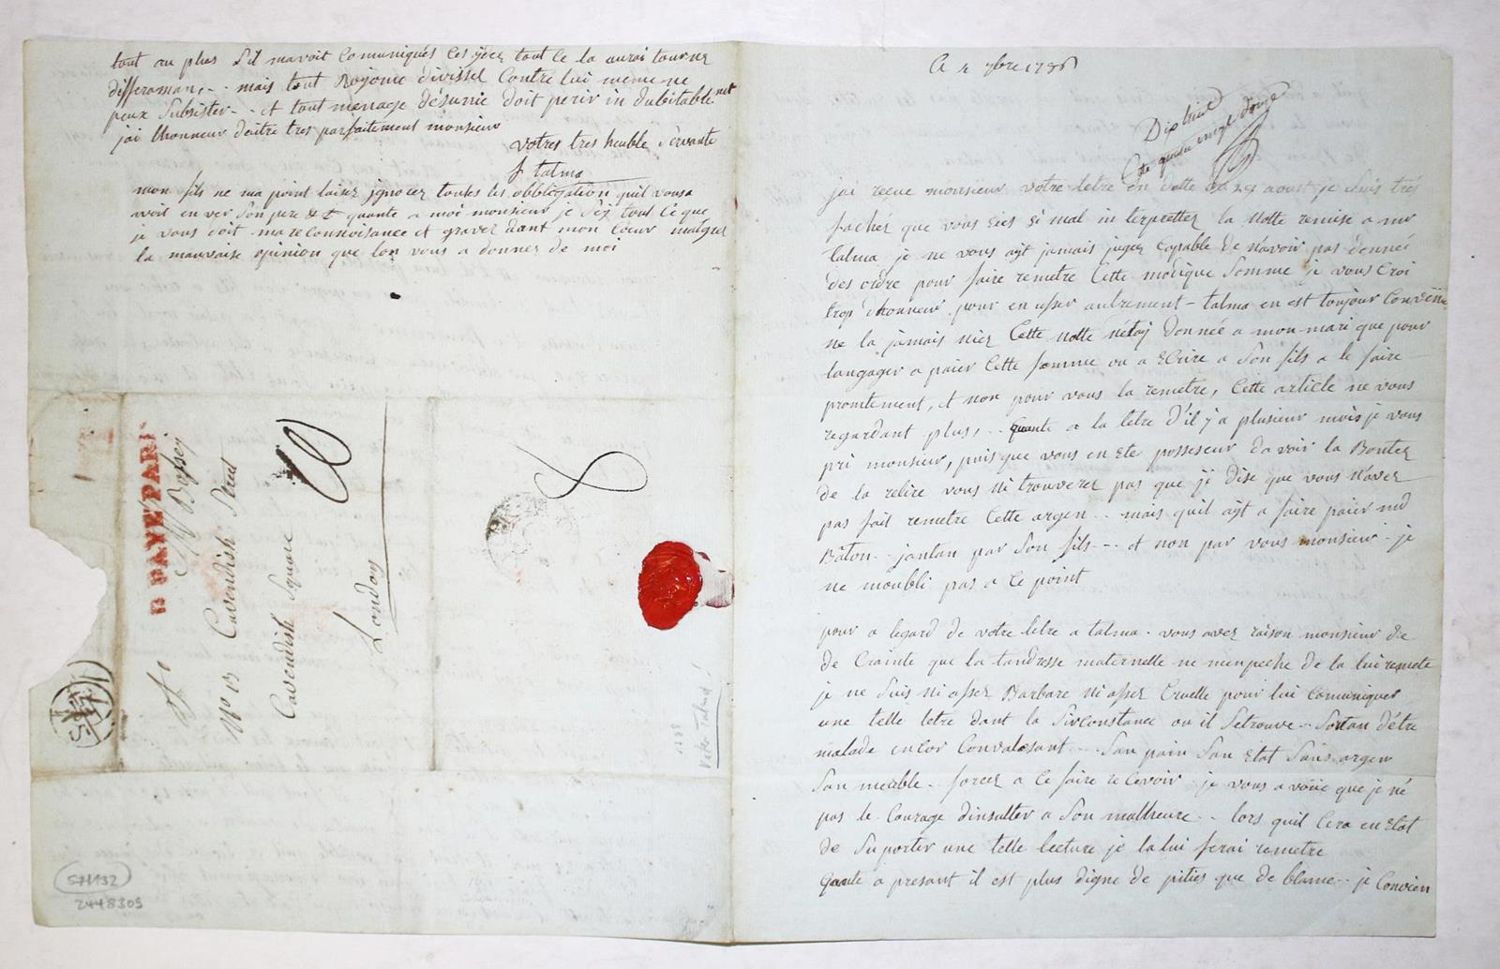 tout au plus s'il mavoit Comuniqués Ces ydees tout Ce la aurai tournez
differaman, -- mais tout Royome divissel Contre lui meme ne
peux Subsister -- et tout menage désunie doit perir in dubitablenet
jai lhonneur deitre tres parfaitement monsieur
votres tres heuble servante
f talma
mon fils ne ma point laisez jgnorer toutes les obbligation quil vous a
avoit en ver Son pere &t quante a moi monsieur je Sez tout Ce que
je vous doit ma reconnoisance et graver dant mon Coeur malgrez
la mauvaise opinion que lon vous a donnez de moi
P PAYÉ PARIS
Mr Bassey
No 13 Cavendish Street
Cavendish Square
London
1788
Talma
571132
2448305
Ce 4 7bre 1786
Dix huit
Cte quatre vingt douze
jai reçue monsieur votre letre en datte du 29 aoust je Suis très
fachés que vous eies si mal in terprettez la notte remise a mr
talma je ne vous ayt jamais jugez Capable de n'avoir pas donneé
des ordre pour faire remetre Cette modique Somme je vous Croi
trop d'honneur pour en user autrement - talma en est toujour Convenue
ne la jamais niez Cette notte n'etoij donneé a mon mari que pour
langager a paier Cette somme ou a Ecrire a Son fils a le faire
promtement, et non pour vous la remetre, Cette article ne vous
regardant plus, -- quante a la letre d'il y a plusieur mois je vous
pri monsieur, puisque vous en ete possesseur da voir la Bontez
de la relire vous ni trouverez pas que je dise que vous n'avez
pas fait remetre Cette argen -- mais quil ayt a faire paier md
Baton -- jantan par Son fils -- et non par vous monsieur - je
ne moubli pas a ce point
pour a legard de votre letre a talma - vous avez raison monsieur de
de Crainte que la tandresse maternelle ne menpeche de la lui remete
je ne suis ni assez Barbare ni assez Cruelle pour lui Comuniquer
une telle letre dant la Sirconstance ou il Setrouve -- Sortan d'étre
malade encor Convalesant -- San pain San etat Sans argen
San meuble - forcez a Ce faire recevoir je vous a voüe que je né
pas le Courage dinsulter a Son malheure -- lors quil Cera en etat
de Suporter une telle lecture je la lui ferai remetre
quante a presant il est plus digne de pities que de blame -- je Convien